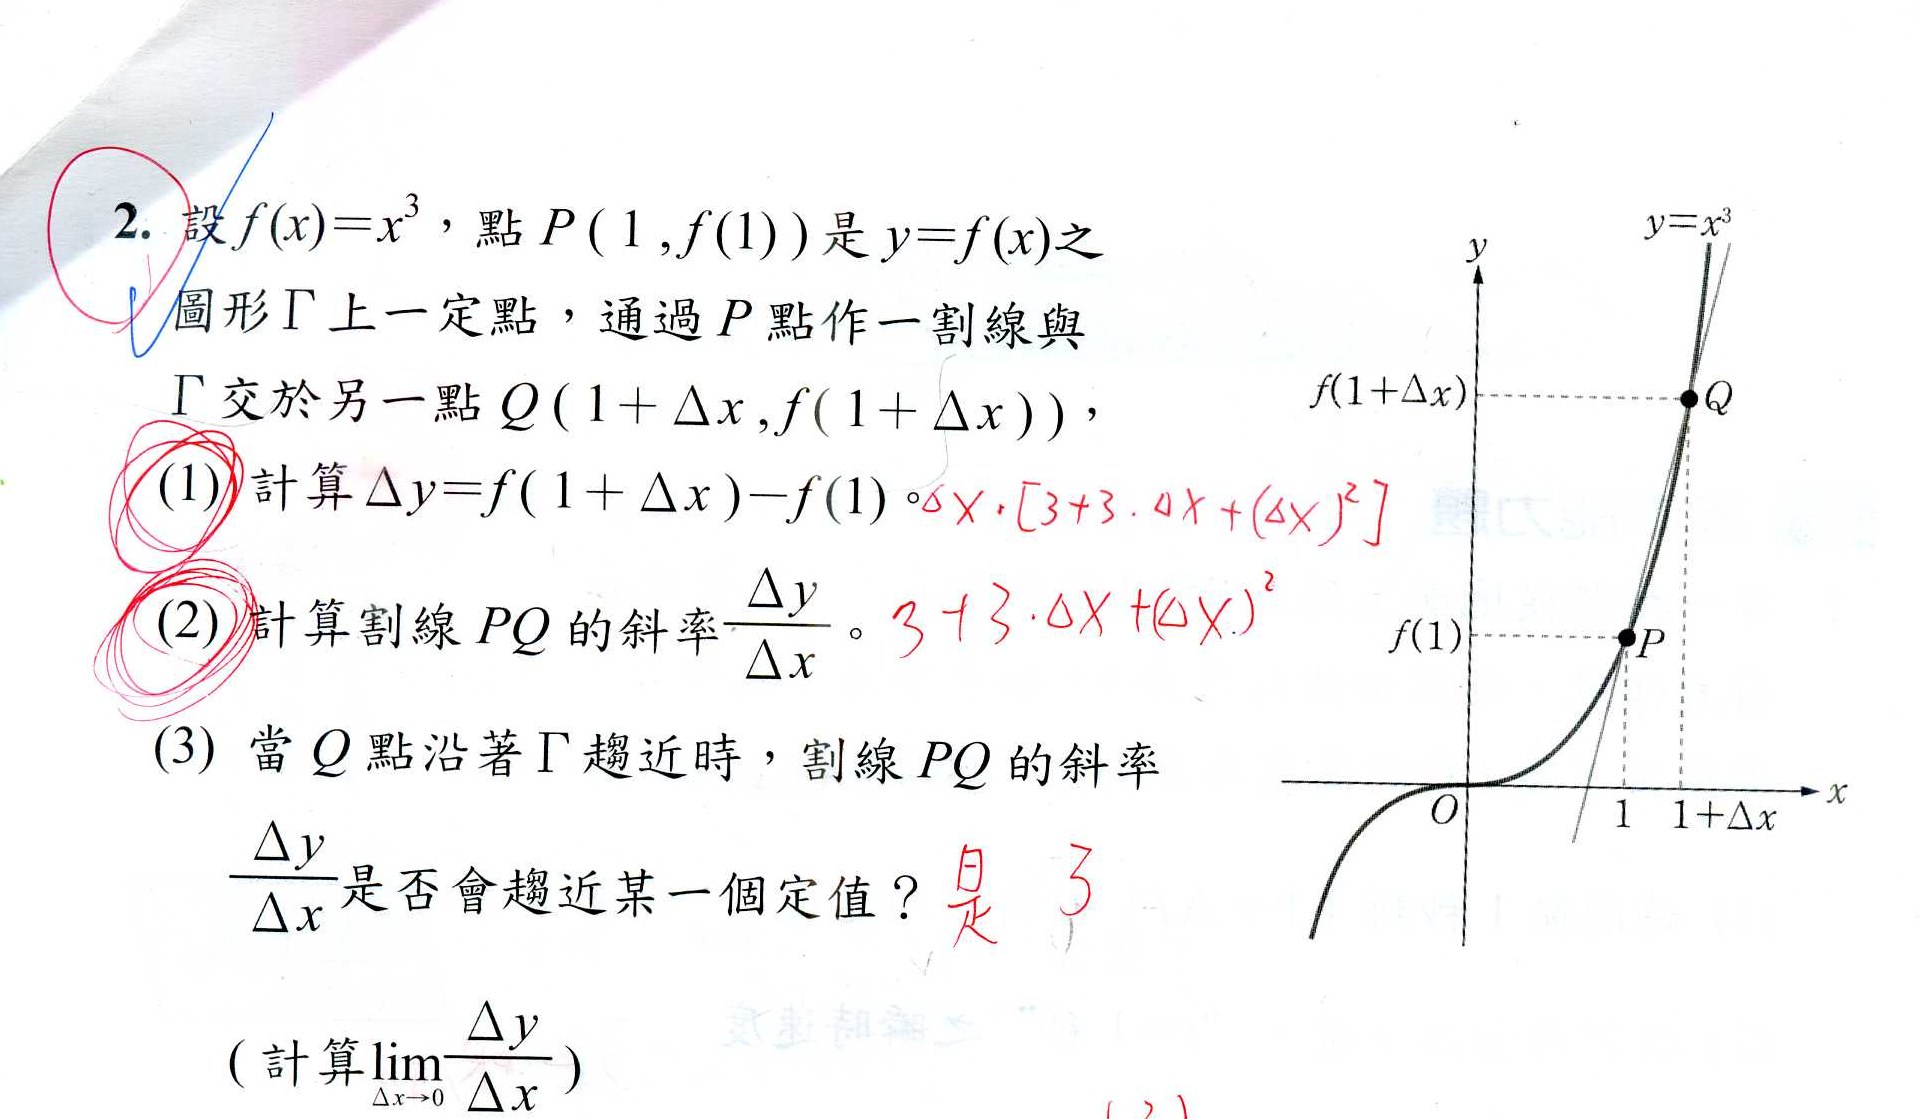 2. 設 f(x)=x³，點 P(1,f(1))是 y=f(x)之
圖形Γ上一定點，通過 P 點作一割線與
Γ交於另一點 Q(1+Δx,f(1+Δx))，
(1) 計算Δy=f(1+Δx)−f(1)。Δx·[3+3·Δx+(Δx)²]
(2) 計算割線 PQ 的斜率Δy/Δx。3+3·Δx+(Δx)²
(3) 當 Q 點沿著Γ趨近時，割線 PQ 的斜率
Δy/Δx是否會趨近某一個定值？是 3
(計算lim Δx→0 Δy/Δx)
y=x³
y
f(1+Δx)
Q
f(1)
P
O
1
1+Δx
x